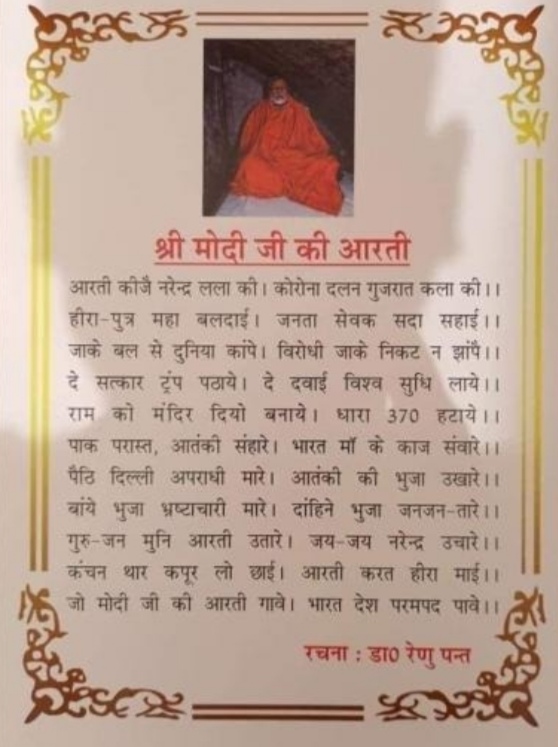 श्री मोदी जी की आरती
आरती कीजै नरेन्द्र लला की। कोरोना दलन गुजरात कला की।।
हीरा-पुत्र महा बलदाई। जनता सेवक सदा सहाई।।
जाके बल से दुनिया कांपे। विरोधी जाके निकट न झांपै।।
दे सत्कार ट्रंप पठाये। दे दवाई विश्व सुधि लाये।।
राम को मंदिर दियो बनाये। धारा 370 हटाये।।
पाक परास्त, आतंकी संहारे। भारत माँ के काज संवारे।।
पैठि दिल्ली अपराधी मारे। आतंकी की भुजा उखारे।।
बांये भुजा भ्रष्टाचारी मारे। दांहिने भुजा जनजन-तारे।।
गुरु-जन मुनि आरती उतारे। जय-जय नरेन्द्र उचारे।।
कंचन थार कपूर लो छाई। आरती करत हीरा माई।।
जो मोदी जी की आरती गावे। भारत देश परमपद पावे।।
रचना : डा0 रेणु पन्त